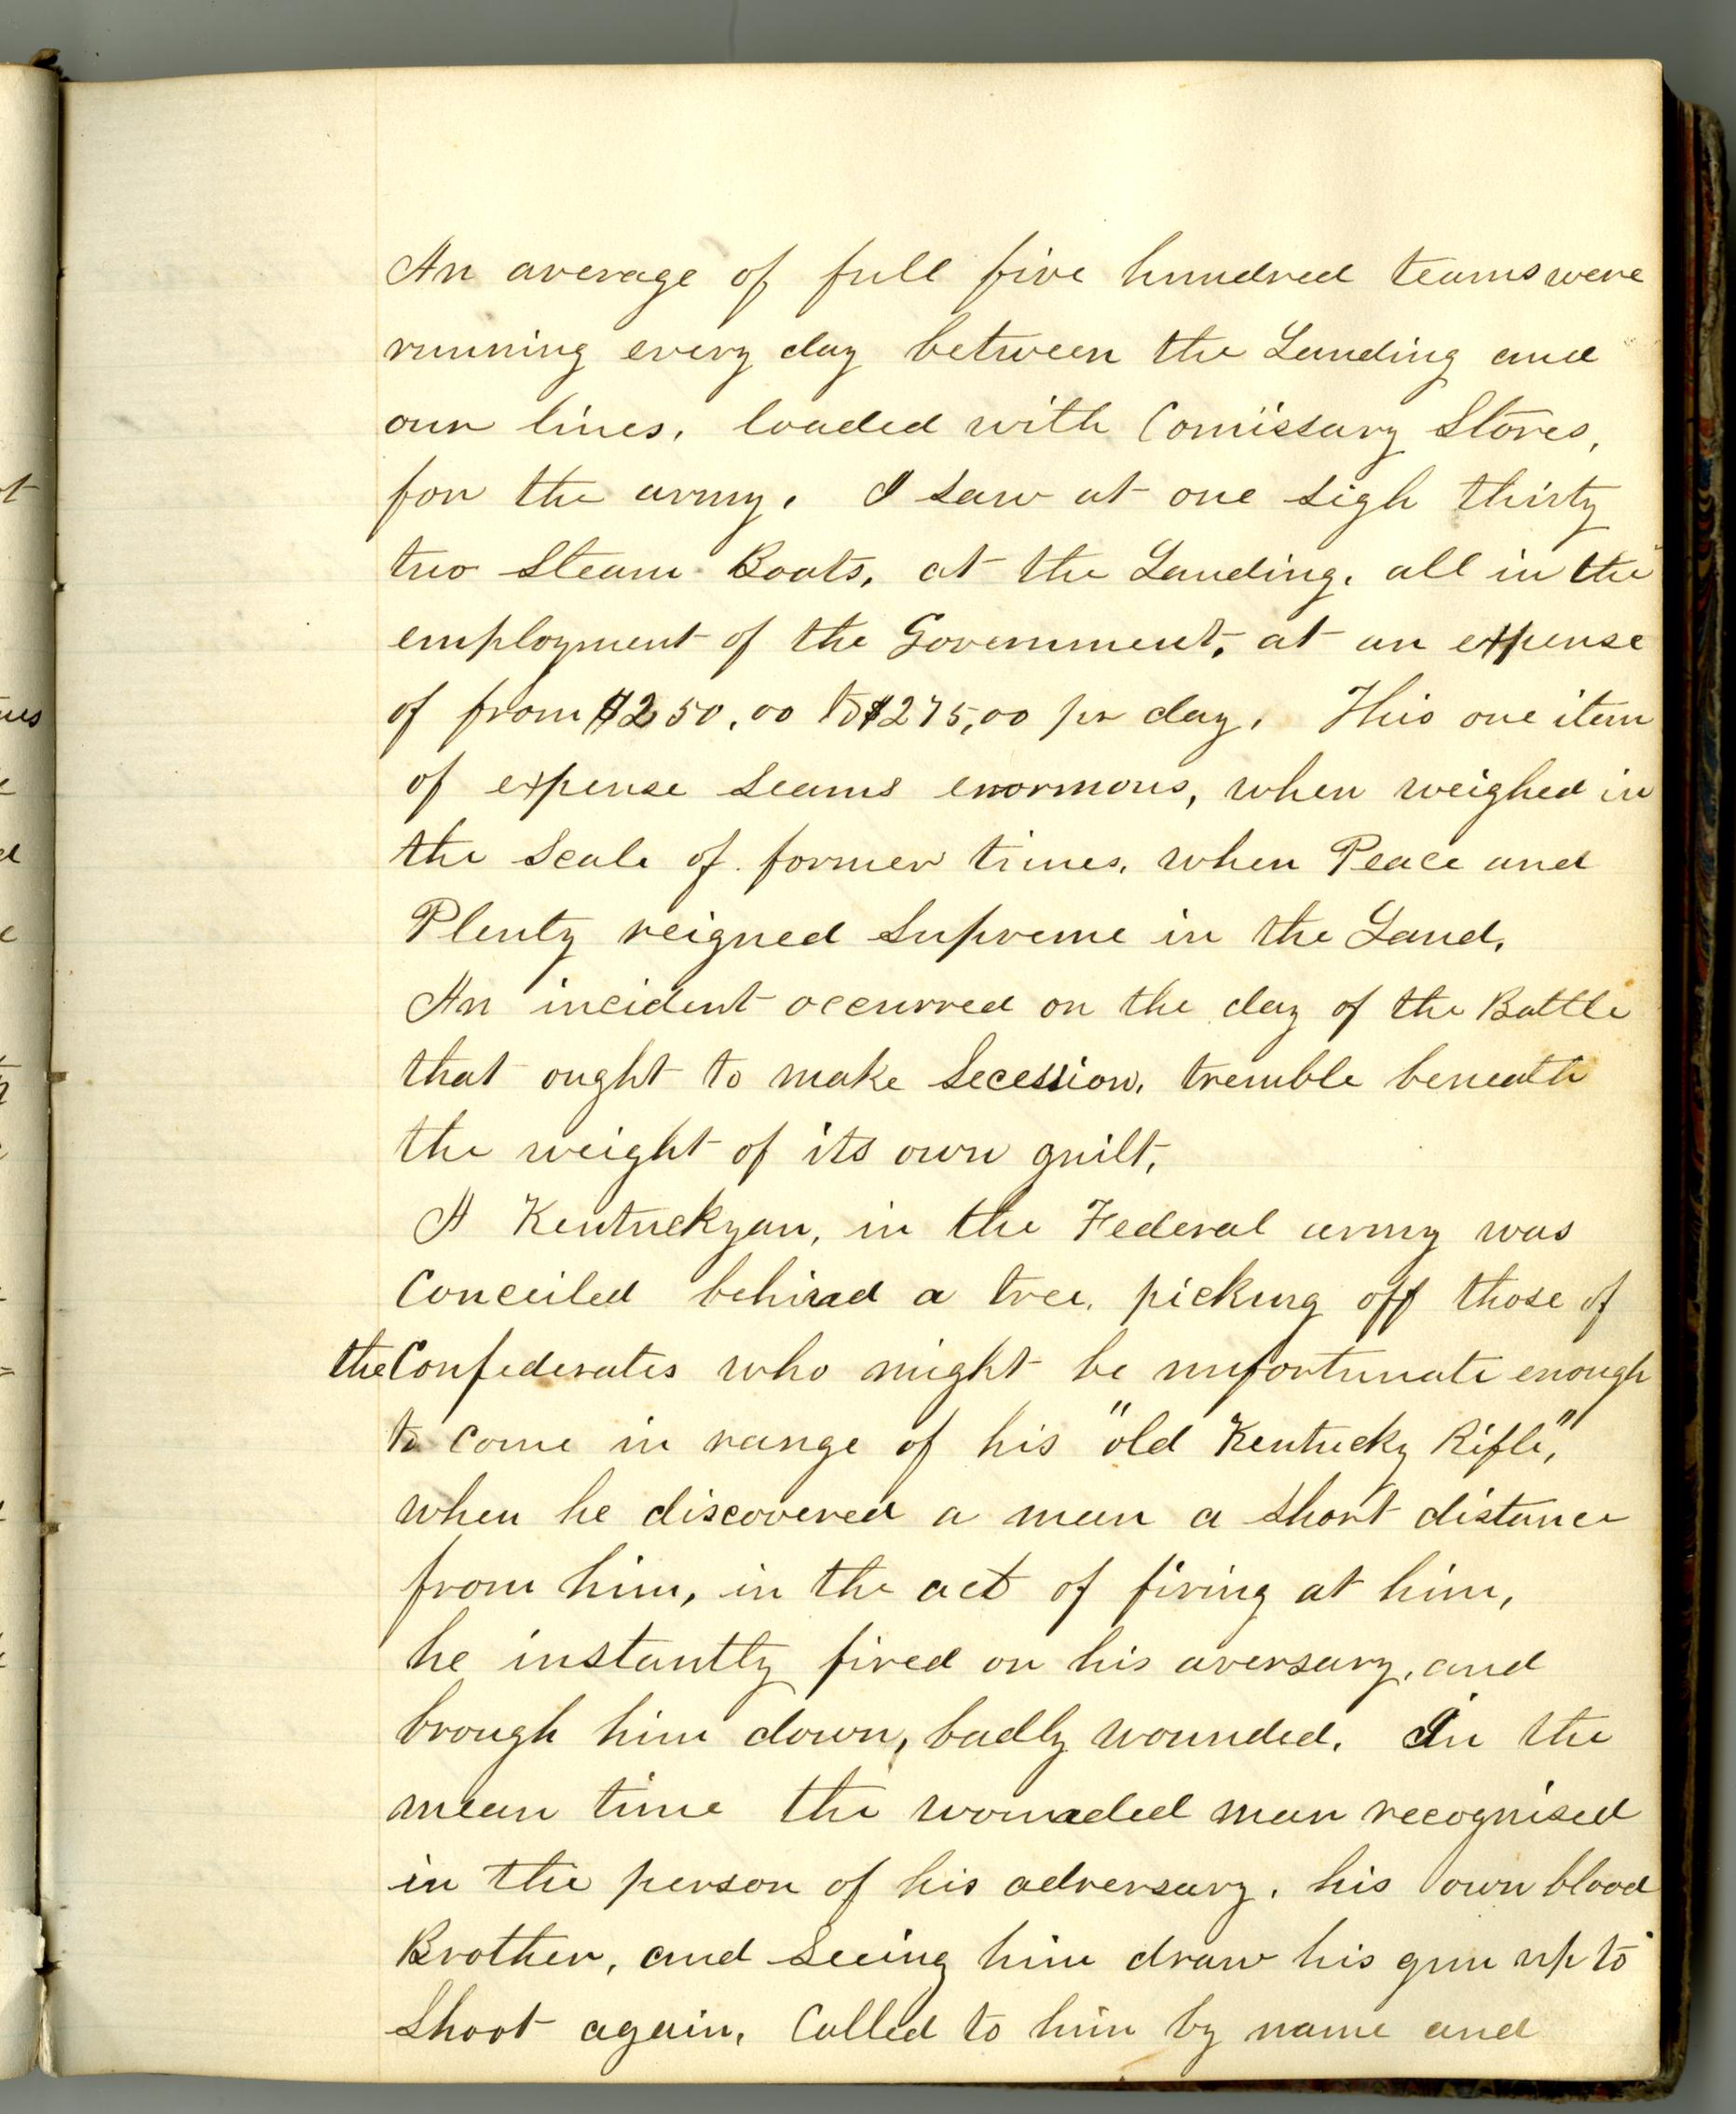 An average of full five hundred teams were
running every day between the Landing and
our lines, loaded with Comissary Stores,
for the army. I saw at one sigh thirty
two Steam Boats, at the Landing, all in the
employment of the Government, at an expense
of from $250,00 to $275,00 pr day. This one item
of expense seams enormous, when weighed in
the scale of former times, when Peace and
Plenty reigned Supreme in the Land.
An incident occurred on the day of the Battle
that ought to make Secession, tremble beneath
the weight of its own guilt.
A Kentuckyan, in the Federal army was
Conceiled behind a tree, picking off those of
the Confederates who might be unfortunate enough
to come in range of his "old Kentucky Rifle,"
when he discovered a man a short distance
from him, in the act of firing at him,
he instantly fired on his aversary, and
brough him down, badly wounded. In the
mean time the wounded man recognised
in the person of his adversary, his own blood
Brother, and seeing him draw his gun up to
shoot again, Called to him by name and